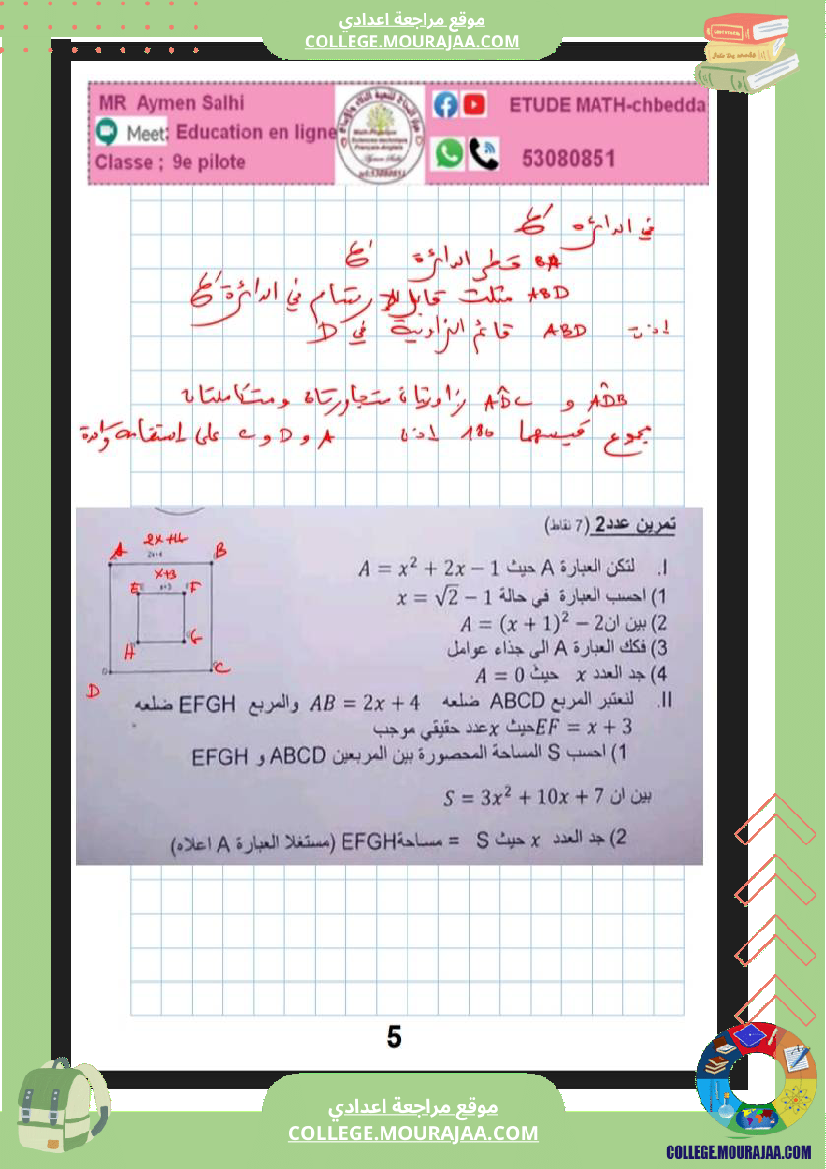 موقع مراجعة اعدادي
COLLEGE.MOURAJAA.COM
MR Aymen Salhi
Meet: Education en ligne
Classe ; 9e pilote
ETUDE MATH-chbedda
53080851
في الدائرة
BA قطر الدائرة
ABD مثلث قابل للارتسام في الدائرة
اذن ABD قائم الزاوية في D
ADB و ADC زاويتان متجاورتان ومتكاملتان
مجموع قيسهما 180 اذن A و D و C على استقامة واحدة
تمرين عدد2 (7 نقاط)
I. لتكن العبارة A حيث A = x² + 2x − 1
1) احسب العبارة في حالة x = √2 − 1
2) بين ان A = (x + 1)² − 2
3) فكك العبارة A الى جذاء عوامل
4) جد العدد x حيث A = 0
II. لنعتبر المربع ABCD ضلعه AB = 2x + 4 والمربع EFGH ضلعه
EF = x + 3 حيث x عدد حقيقي موجب
1) احسب S المساحة المحصورة بين المربعين ABCD و EFGH
بين ان S = 3x² + 10x + 7
2) جد العدد x حيث S = مساحة EFGH (مستغلا العبارة A اعلاه)
2x+4
A
B
2x+4
x+3
E
x+3
F
H
G
D
C
5
موقع مراجعة اعدادي
COLLEGE.MOURAJAA.COM
COLLEGE.MOURAJAA.COM